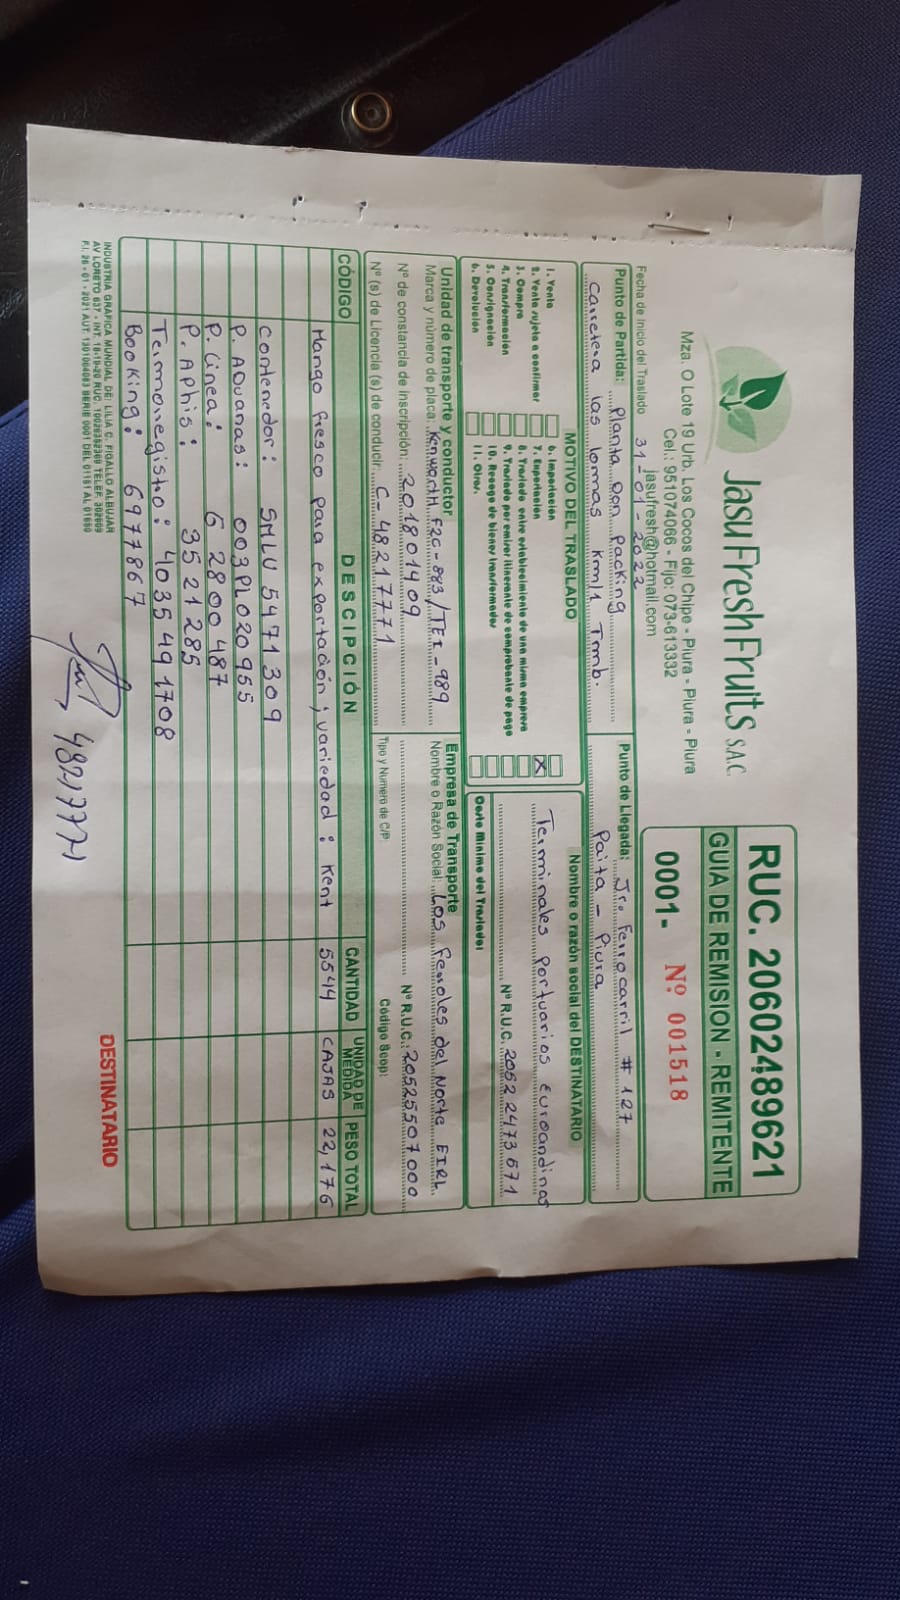 JasuFreshFruits S.A.C
Mza. O Lote 19 Urb. Los Cocos del Chipe - Piura - Piura - Piura
Cel.: 951074066 - Fijo: 073-613332
jasufresh@hotmail.com
RUC. 20602489621
GUIA DE REMISION - REMITENTE
0001- Nº 001518
Fecha de Inicio del Traslado 31-01-2022
Punto de Partida: Planta Don Packing
Carretera las lomas Km 1 Tmb.
Punto de Llegada: Jr. Ferrocarril # 127
Paita - Piura
MOTIVO DEL TRASLADO
1. Venta
2. Venta sujeta a confirmar
3. Compra
4. Transformación
5. Consignación
6. Devolución
6. Importación
7. Exportación X
8. Traslado entre establecimiento de una misma empresa
9. Traslado por emisor itinerante de comprobante de pago
10. Recogo de bienes transformados
11. Otros.
Nombre o razón social del DESTINATARIO
Terminales Portuarios Euroandinos
Nº R.U.C. 20522473571
Costo Mínimo del Traslado:
Unidad de transporte y conductor
Marca y número de placa: Kenworth F2C-883/TEI-989
Nº de constancia de Inscripción: 201801409
Nº (s) de Licencia (s) de conducir: C-48217771
Empresa de Transporte
Nombre o Razón Social: Los Ferroles del Norte EIRL
Nº R.U.C.: 20525507000
Tipo y Numero de C/P Código Scop:
CÓDIGO DESCIPCIÓN CANTIDAD UNIDAD DE MEDIDA PESO TOTAL
Mango fresco para exportación; variedad: Kent 5544 CAJAS 22,176
Contenedor: SMLU 5471309
P. Aduanas: 003PL020955
P. Linea: 6280 0487
P. Aphis: 3521285
Termoregistro: 4035491708
Booking: 6977867
INDUSTRIA GRAFICA MUNDIAL DE: LILIA C. FIGALLO ALBUJAR
AV LORETO 637 - INT. 18-19-20 RUC. 10026352369 TELEF. 302609
F.I. 26 - 01 - 2021 AUT. 1301064083 SERIE 0001 DEL 01151 AL 01650
DESTINATARIO
48217771